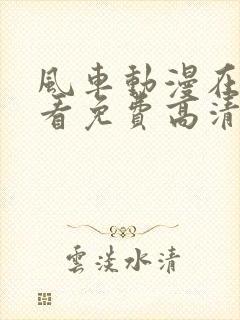 風車動漫在
看免費高清
雲淡水清